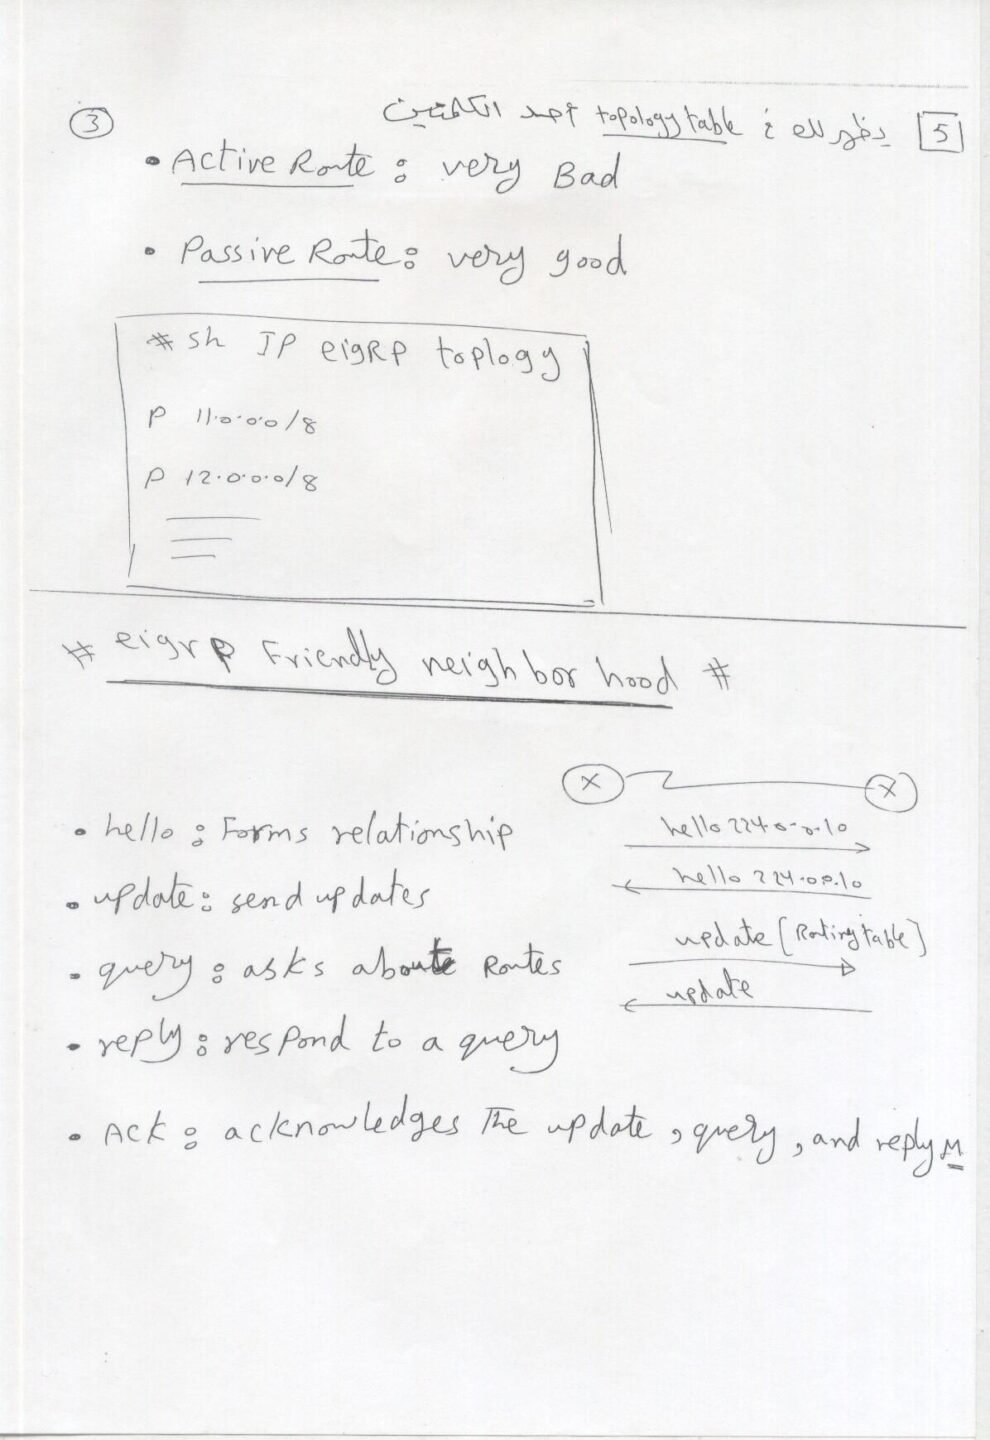 ③
[5] يظهر لك في topology table أحد الكلمتين
• Active Route : very Bad
• Passive Route : very good
# sh IP eigRP toplogy
P 11.0.0.0/8
P 12.0.0.0/8
# eigrp Friendly neighbor hood #
• hello : Forms relationship
• update : send updates
• query : asks aboute Routes
• reply : respond to a query
• Ack : acknowledges The update , query , and reply M
X X
hello 224.0.0.10
hello 224.0.0.10
update [Routing table]
update